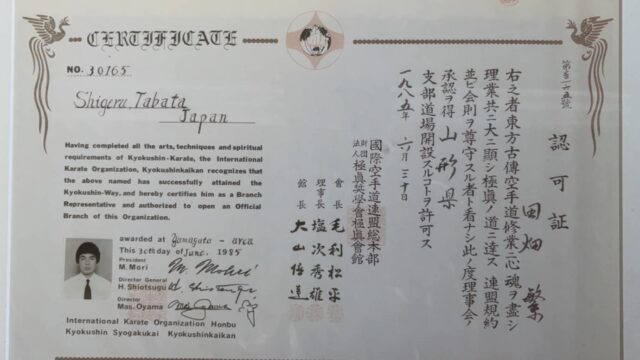 CERTIFICATE
NO. 30165
Shigeru, Tabata
Japan
Having completed all the arts, techniques and spiritual
requirements of Kyokushin-Karate, the International
Karate Organization, Kyokushinkaikan recognizes that
the above named has successfully attained the
Kyokushin-Way, and hereby certifies him as a Branch
Representative and authorized to open an Official
Branch of this Organization.
awarded at Yamagata-area
This 30th of June. 1985
President
M. Mori
Director General
H. Shiotsugu
Director
Mas. Oyama
International Karate Organization Honbu
Kyokushin Syogakukai Kyokushinkaikan
認可証
田畑 繁
右之者東方古傳空手道修業ニ心魂ヲ盡シ
理業共ニ大ニ顕シ極真ノ道ニ達ス 連盟規約
並ビ会則ヲ尊守スル者ト看ナシ此ノ度理事会ノ
承認ヲ得 山形県
支部道場開設スルコトヲ許可ス
一九八五年 六月 三十日
國際空手道連盟総本部
財団法人 極真奨学會極真會館
會長 毛利松平
理事長 塩次秀雄
館長 大山倍達